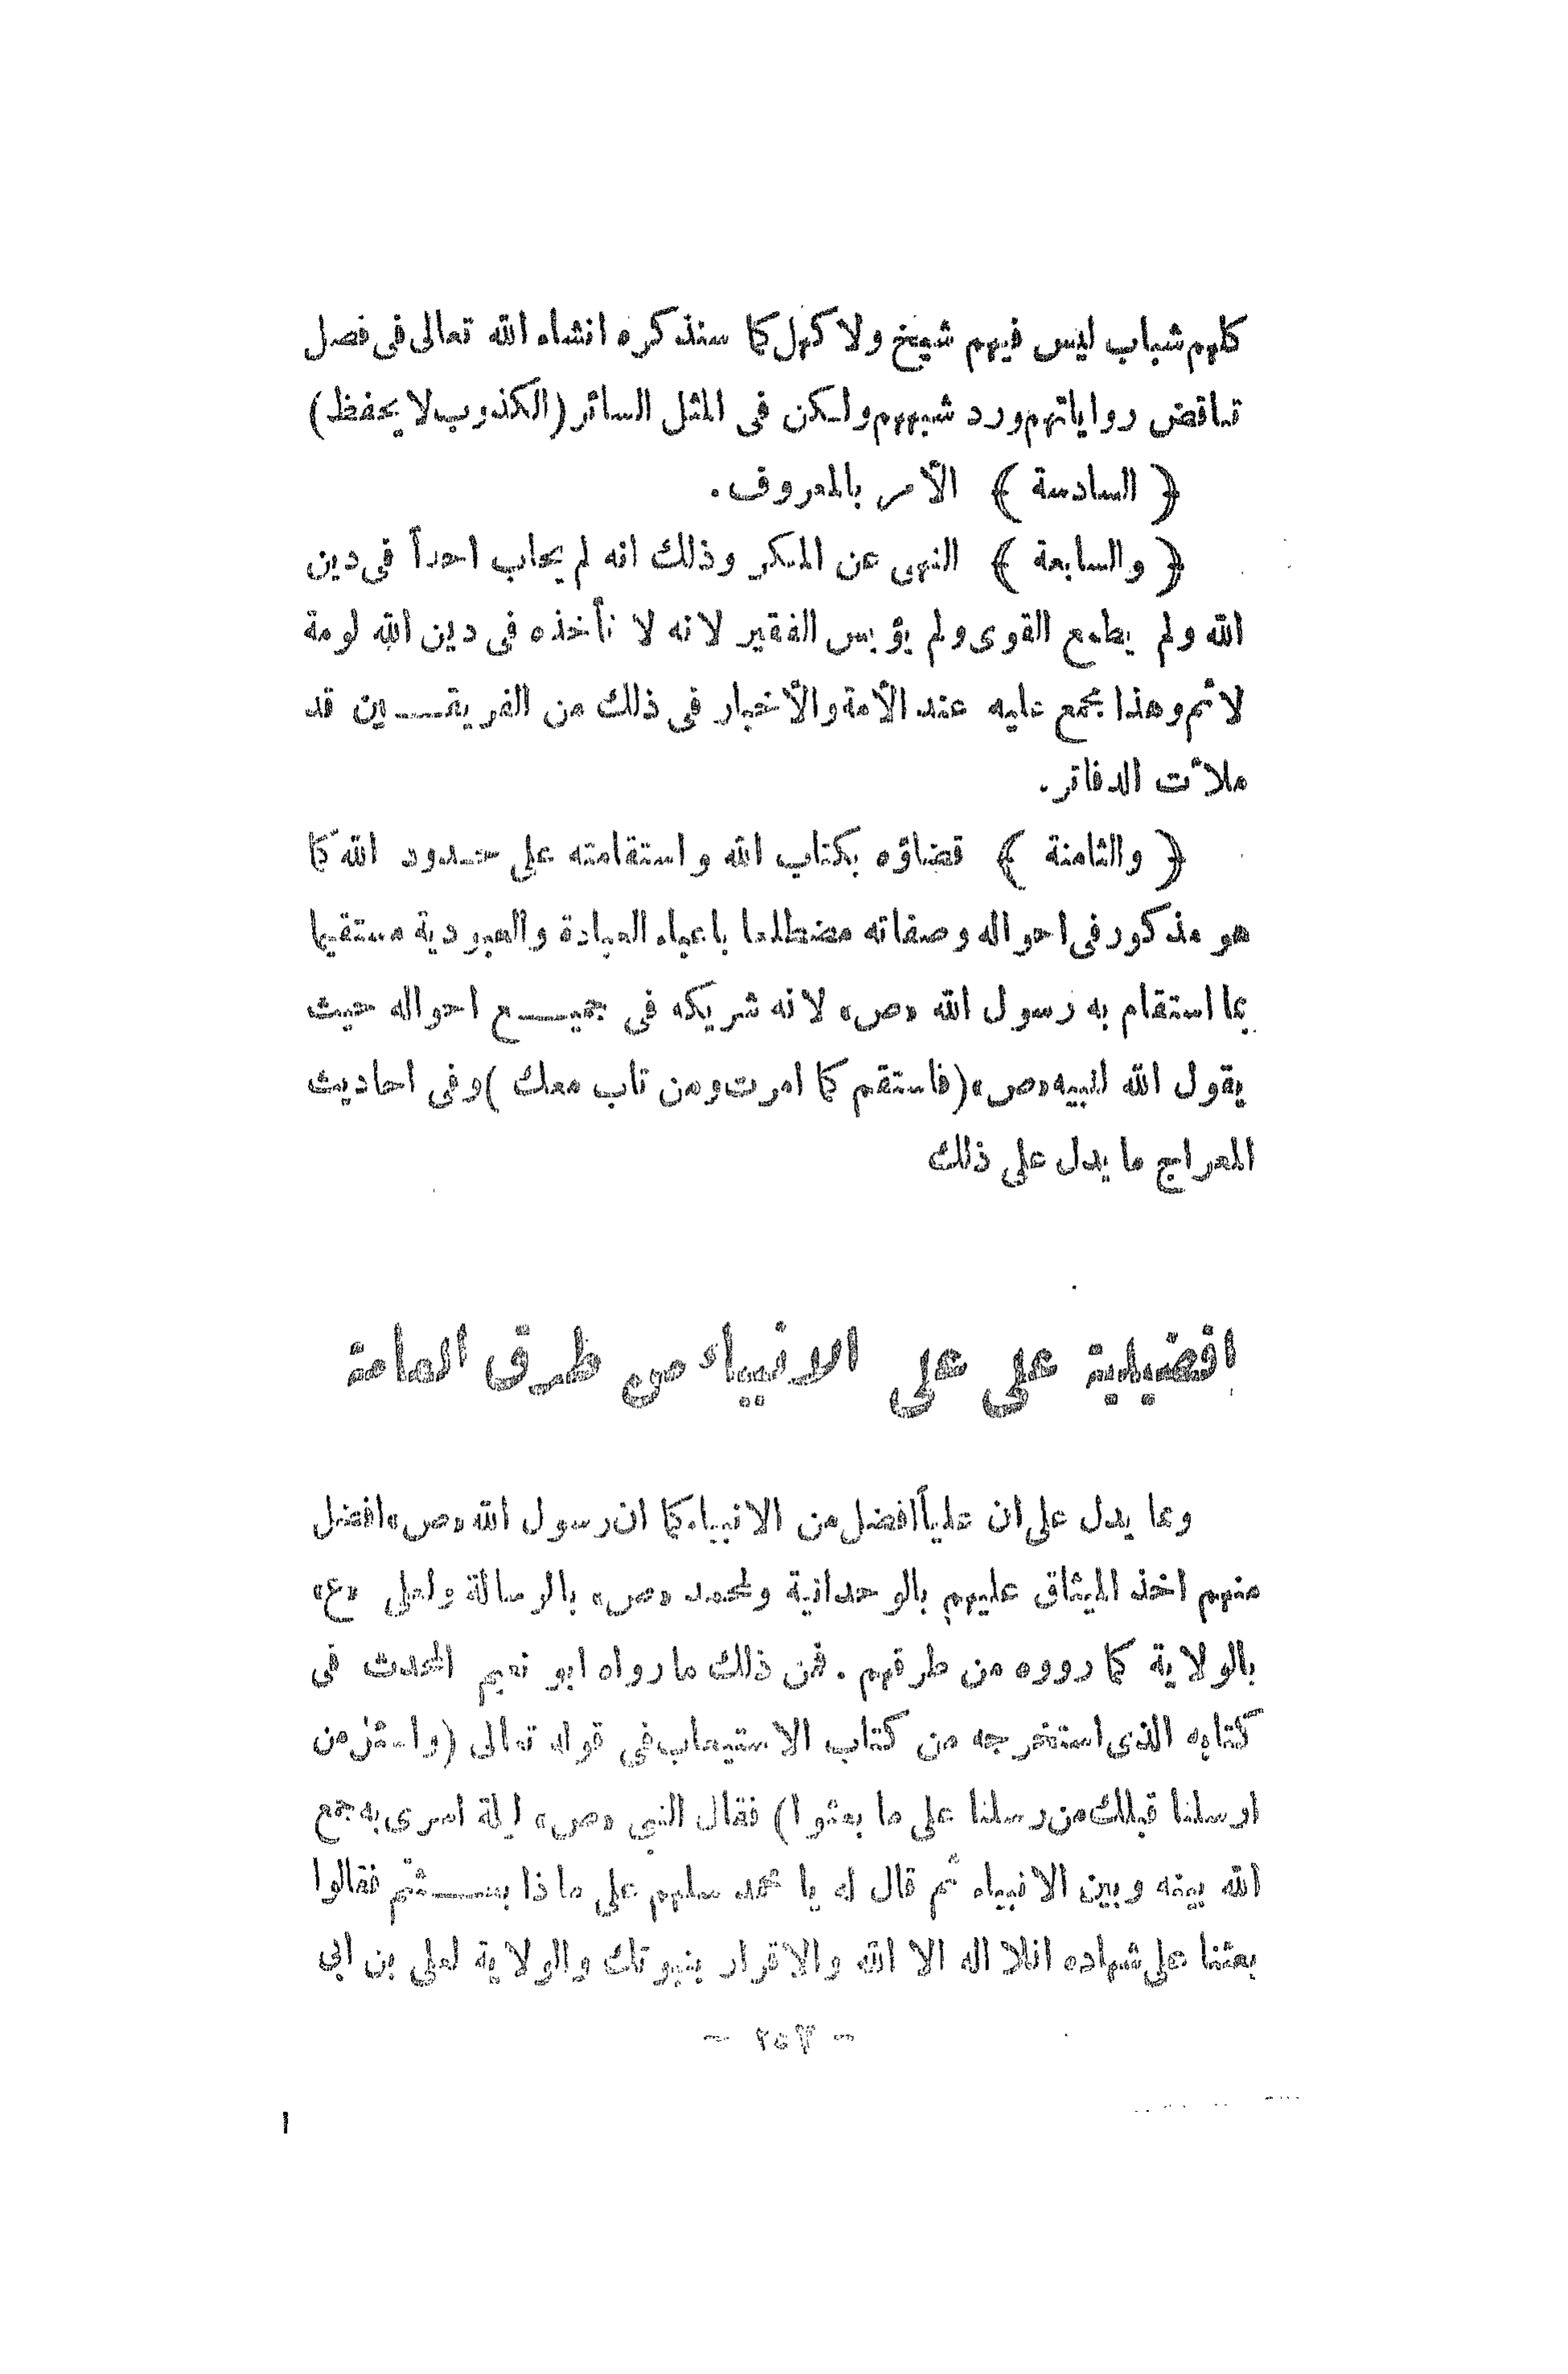 كلهم شباب ليس فيهم شيخ ولا كهل كما سنذكره انشاء الله تعالى فى فصل
تناقض رواياتهم ورد شبههم ولكن فى المثل السائر (الكذوب لا يحفظ)
﴿ السادسة ﴾ الأمر بالمعروف .
﴿ والسابعة ﴾ النهى عن المنكر وذلك انه لم يحاب احداً فى دين
الله ولم يطمع القوى ولم يؤيس الفقير لانه لا تأخذه فى دين الله لومة
لائم وهذا مجمع عليه عند الأمة والأخبار فى ذلك من الفريقــين قد
ملأت الدفاتر .
﴿ والثامنة ﴾ قضاؤه بكتاب الله واستقامته على حــدود الله كما
هو مذكور فى احواله وصفاته مضطلعا باعباء العبادة والعبودية مستقيما
بما استقام به رسول الله «ص» لانه شريكه فى جميــع احواله حيث
يقول الله لنبيه «ص» (فاستقم كما امرت ومن تاب معك ) وفى احاديث
المعراج ما يدل على ذلك
افضيلية على على الانبياء من طرق العامة
ومما يدل على ان علياً افضل من الانبياء كما ان رسول الله «ص» افضل
منهم اخذ الميثاق عليهم بالوحدانية ولمحمد «ص» بالرسالة ولعلى «ع»
بالولاية كما رووه من طرقهم . فمن ذلك ما رواه ابو نعيم المحدث فى
كتابه الذى استخرجه من كتاب الاستيعاب فى قوله تعالى (واسئل من
ارسلنا قبلك من رسلنا على ما بعثوا) فقال النبي «ص» ليلة اسرى به جمع
الله بينه وبين الانبياء ثم قال له يا محمد سلهم على ماذا بعــثتم فقالوا
بعثنا على شهاده انلا اله الا الله والاقرار بنبوتك والولاية لعلى بن ابى